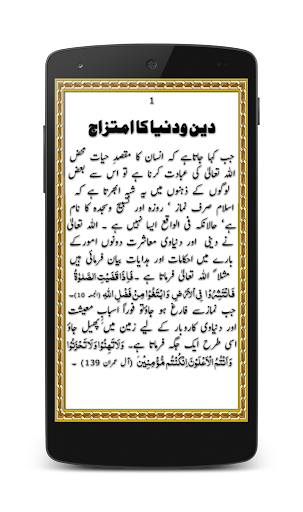 1
دین و دنیا کا امتزاج
جب کہا جاتا ہے کہ انسان کا مقصدِ حیات محض
اللہ تعالیٰ کی عبادت کرنا ہے تو اس سے بعض
لوگوں کے ذہنوں میں یہ شبہ ابھرتا ہے کہ
اسلام صرف نماز ' روزہ اور تسبیح وسجدہ کا نام
ہے' حالانکہ فی الواقع ایسا نہیں ہے ۔ اللہ تعالیٰ
نے دینی اور دنیاوی معاشرت دونوں امور کے
بارے میں احکامات اور ہدایات بیان فرمائی ہیں
مثلاً اللہ تعالیٰ فرماتا ہے ۔ فَاِذَا قُضِيَتِ الصَّلٰوةُ
فَانْتَشِرُوْا فِی الْاَرْضِ وَابْتَغُوْا مِنْ فَضْلِ اللّٰهِ (الجمعہ 10)۔
جب نماز سے فارغ ہو جاؤ تو فوراً اسبابِ معیشت
اور دنیاوی کاروبار کے لیے زمین میں پھیل جاؤ
اسی طرح ایک جگہ فرماتا ہے۔ وَلَا تَهِنُوْا وَلَا تَحْزَنُوْا
وَاَنْتُمُ الْاَعْلَوْنَ اِنْ كُنْتُمْ مُّؤْمِنِيْنَ (آل عمران 139) ۔